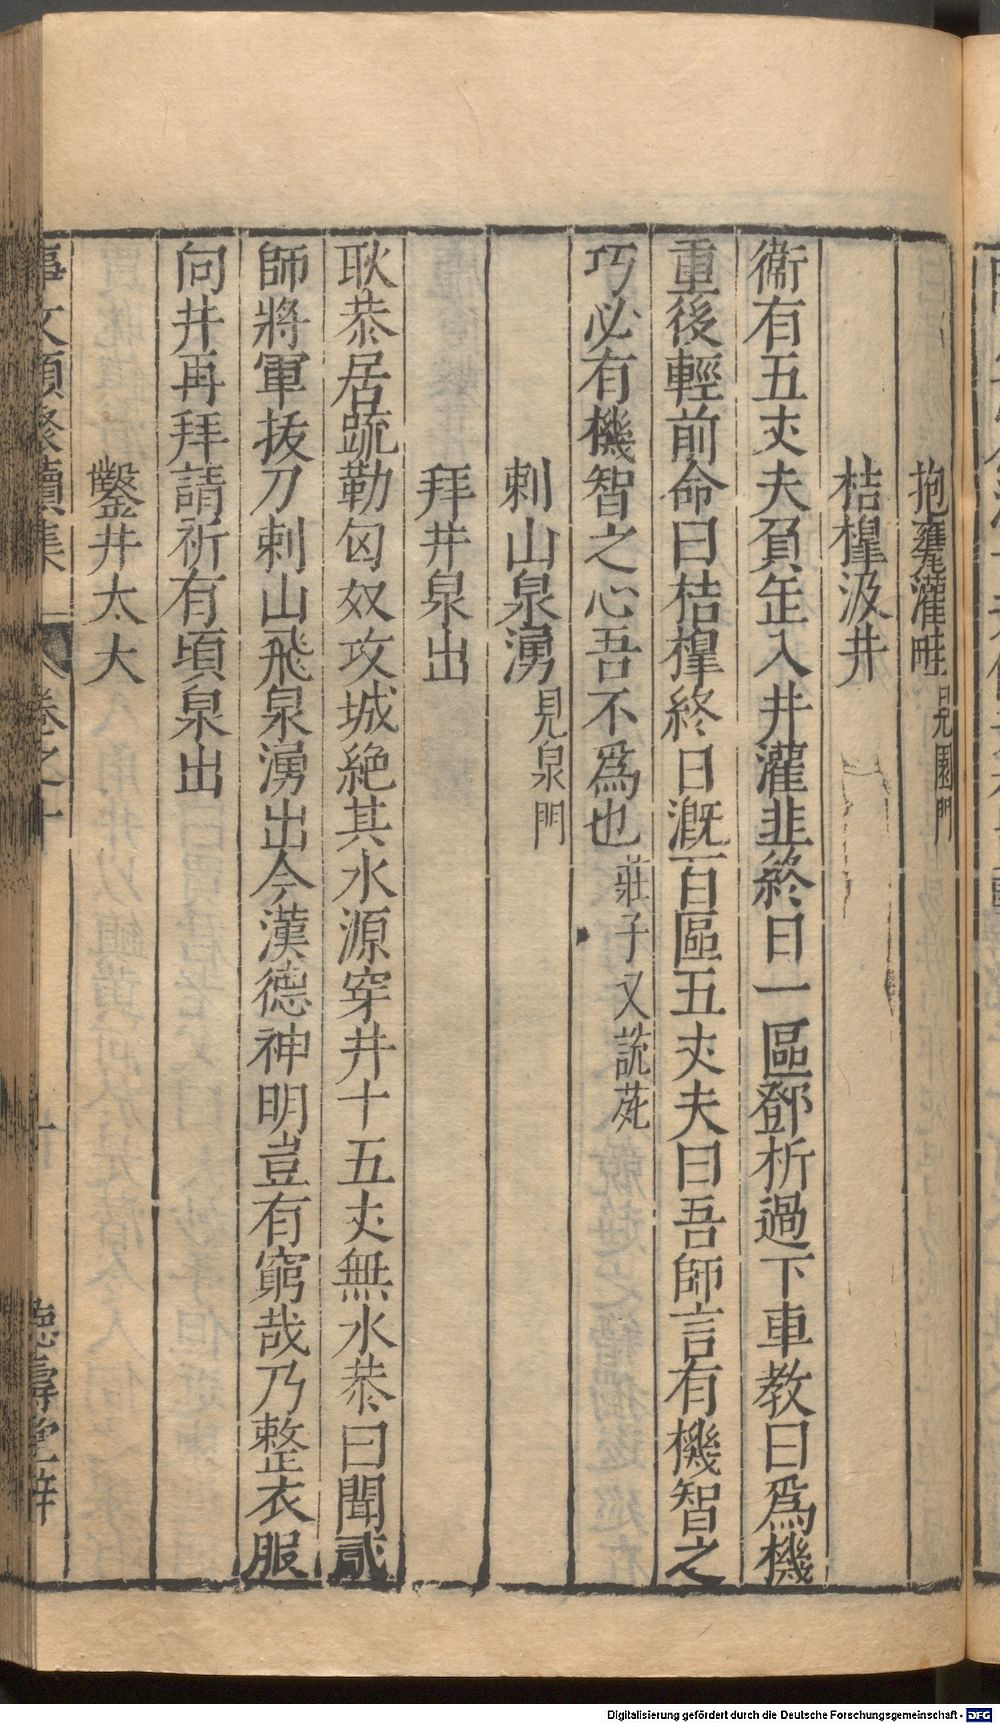 抱甕灌畦見園門
桔橰汲井
衞有五丈夫負缶入井灌韭終日一區鄧析過下車教曰爲機
重後輕前命曰桔橰終日漑百區五丈夫曰吾師言有機智之
巧必有機智之心吾不爲也莊子又説苑
刺山泉湧見泉門
拜井泉出
耿恭居䟽勒匈奴攻城絶其水源穿井十五丈無水恭曰聞貳
師將軍拔刀刺山飛泉湧出今漢德神明豈有窮哉乃整衣服
向井再拜請祈有頃泉出
鑿井太大
事文類聚續集 卷之十 德壽堂梓
Digitalisierung gefördert durch die Deutsche Forschungsgemeinschaft - DFG